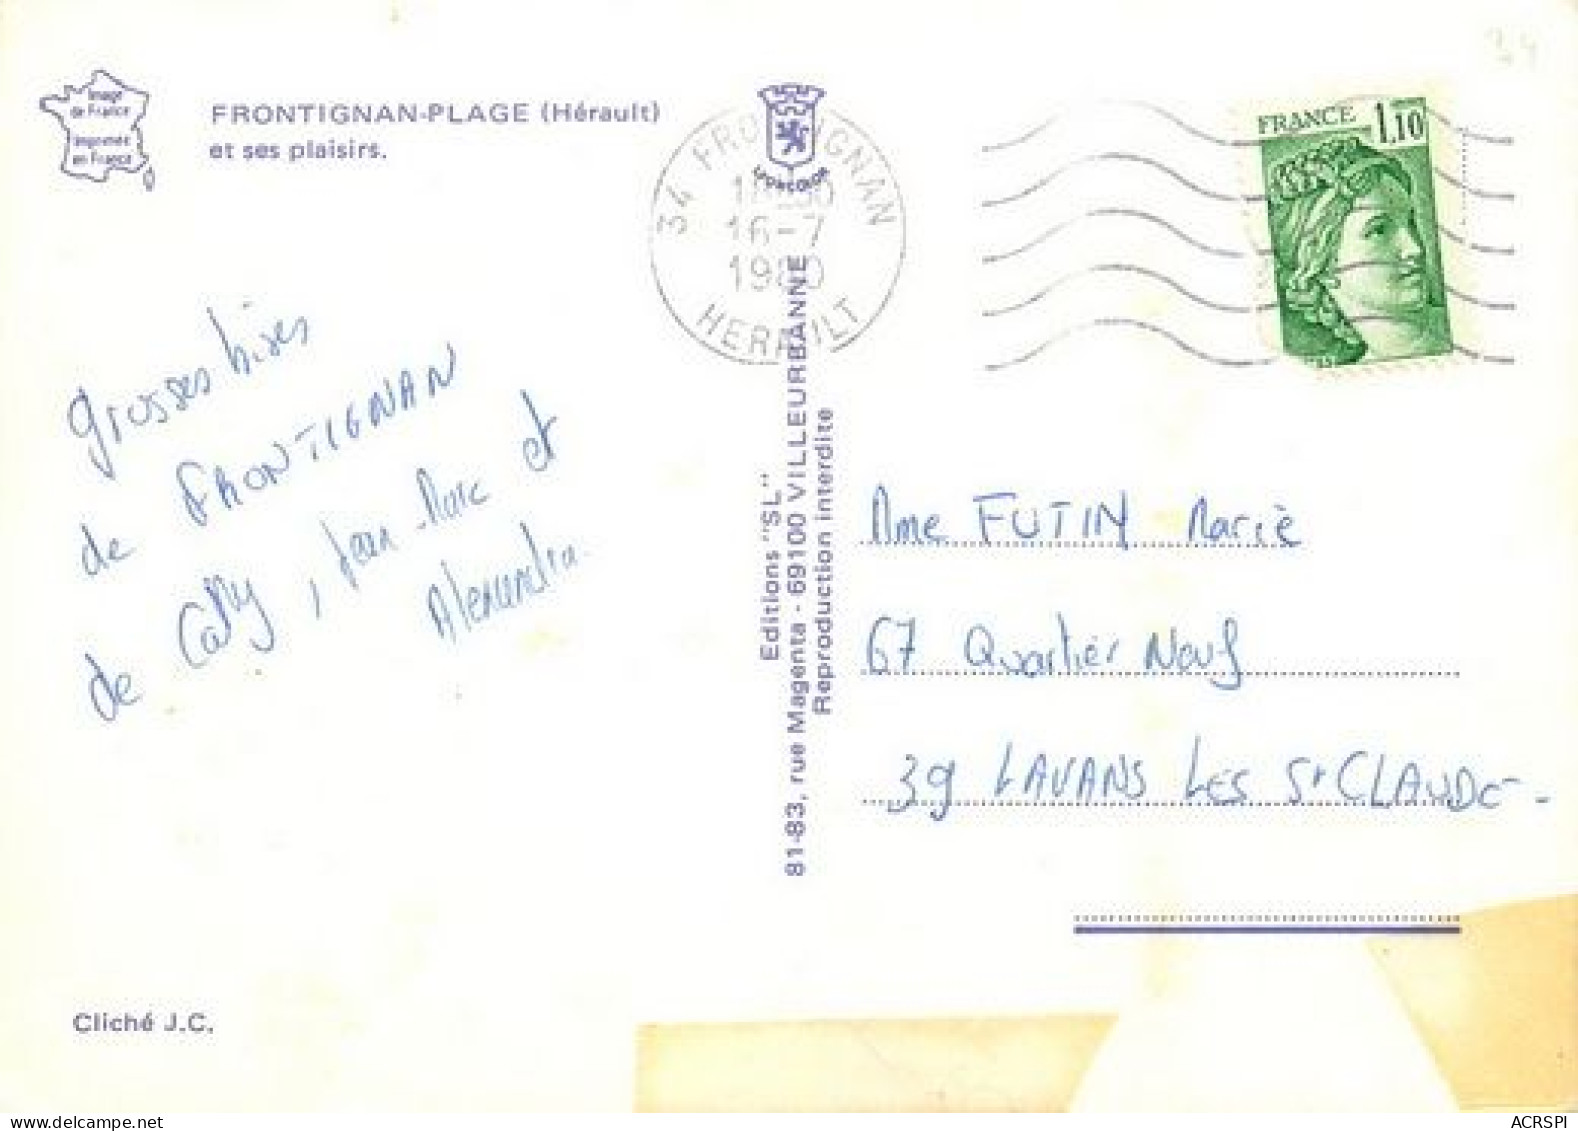 Image
de France
Imprimée
en France
FRONTIGNAN-PLAGE (Hérault)
et ses plaisirs.
34 FRONTIGNAN
16-7
1980
HERAULT
FRANCE 1,10
grosses bises
de FRONTIGNAN
de Cathy, Jean-Marc et
Alexandra.
Editions "SL"
81-83, rue Magenta - 69100 VILLEURBANNE
Reproduction interdite
Mme FUTIN Marie
67 Quartier Neuf
39 LAVANS LES St CLAUDE-
Cliché J.C.
34
ACRSPI